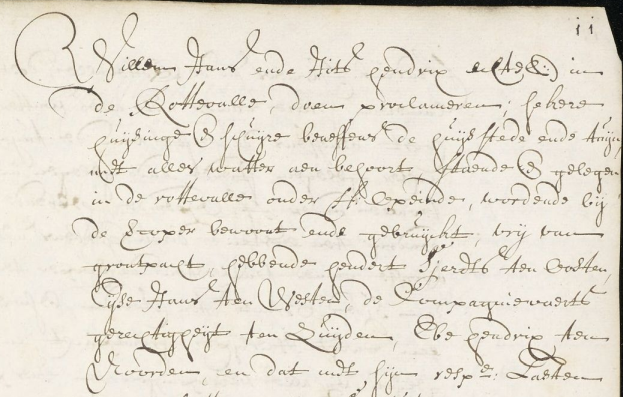 11
Willem Hans ende Aits hendrix echtel: in
de Rottevalle, doen proclameren, sekere
huijsinge & schuijre beneffens de huijsstede ende tuijn,
met alles watter aen behoort staende & gelegen
in de rottevalle onder Opeinde, wordende bij
de Coper bewoont ende gebruijckt, vrij van
grontpacht, hebbende hendert Sjerdts ten Oosten,
Eijse Hans ten Westen, de Compagnievaerts
gerechtigheijt ten Zuijden, Ebe hendrix ten
Noorden, en dat met sijn resp:de Lasten